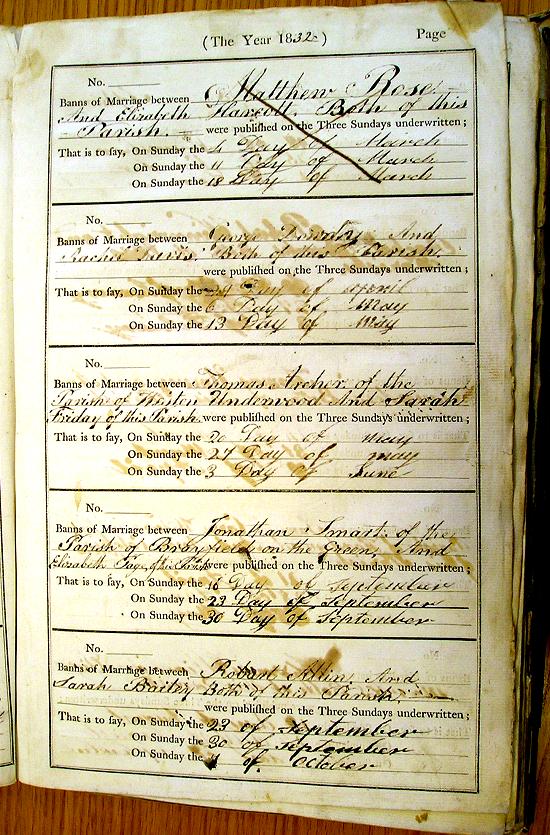 (The Year 1832) Page
No.
Banns of Marriage between Matthew Rose
And Elizabeth Harcott. Both of this
Parish. were published on the Three Sundays underwritten;
That is to say, On Sunday the 4 Day of March
On Sunday the 11 Day of March
On Sunday the 18 Day of March
No.
Banns of Marriage between George And
Rachel Both of this Parish.
were published on the Three Sundays underwritten;
That is to say, On Sunday the Day of April
On Sunday the 6 Day of May
On Sunday the 13 Day of May
No.
Banns of Marriage between Thomas Archer of the
Parish of Weston Underwood And Sarah
Friday of this Parish. were published on the Three Sundays underwritten;
That is to say, On Sunday the 20 Day of may
On Sunday the 27 Day of may
On Sunday the 3 Day of June
No.
Banns of Marriage between Jonathan Smart of the
Parish of Brayfield on the Green, And
Elizabeth Page, of this Parish were published on the Three Sundays underwritten;
That is to say, On Sunday the 16 Day of September
On Sunday the 23 Day of September
On Sunday the 30 Day of September
No.
Banns of Marriage between Robert Allin, And
Sarah Bailey Both of this Parish.
were published on the Three Sundays underwritten;
That is to say, On Sunday the 23 of September
On Sunday the 30 of September
On Sunday the of October